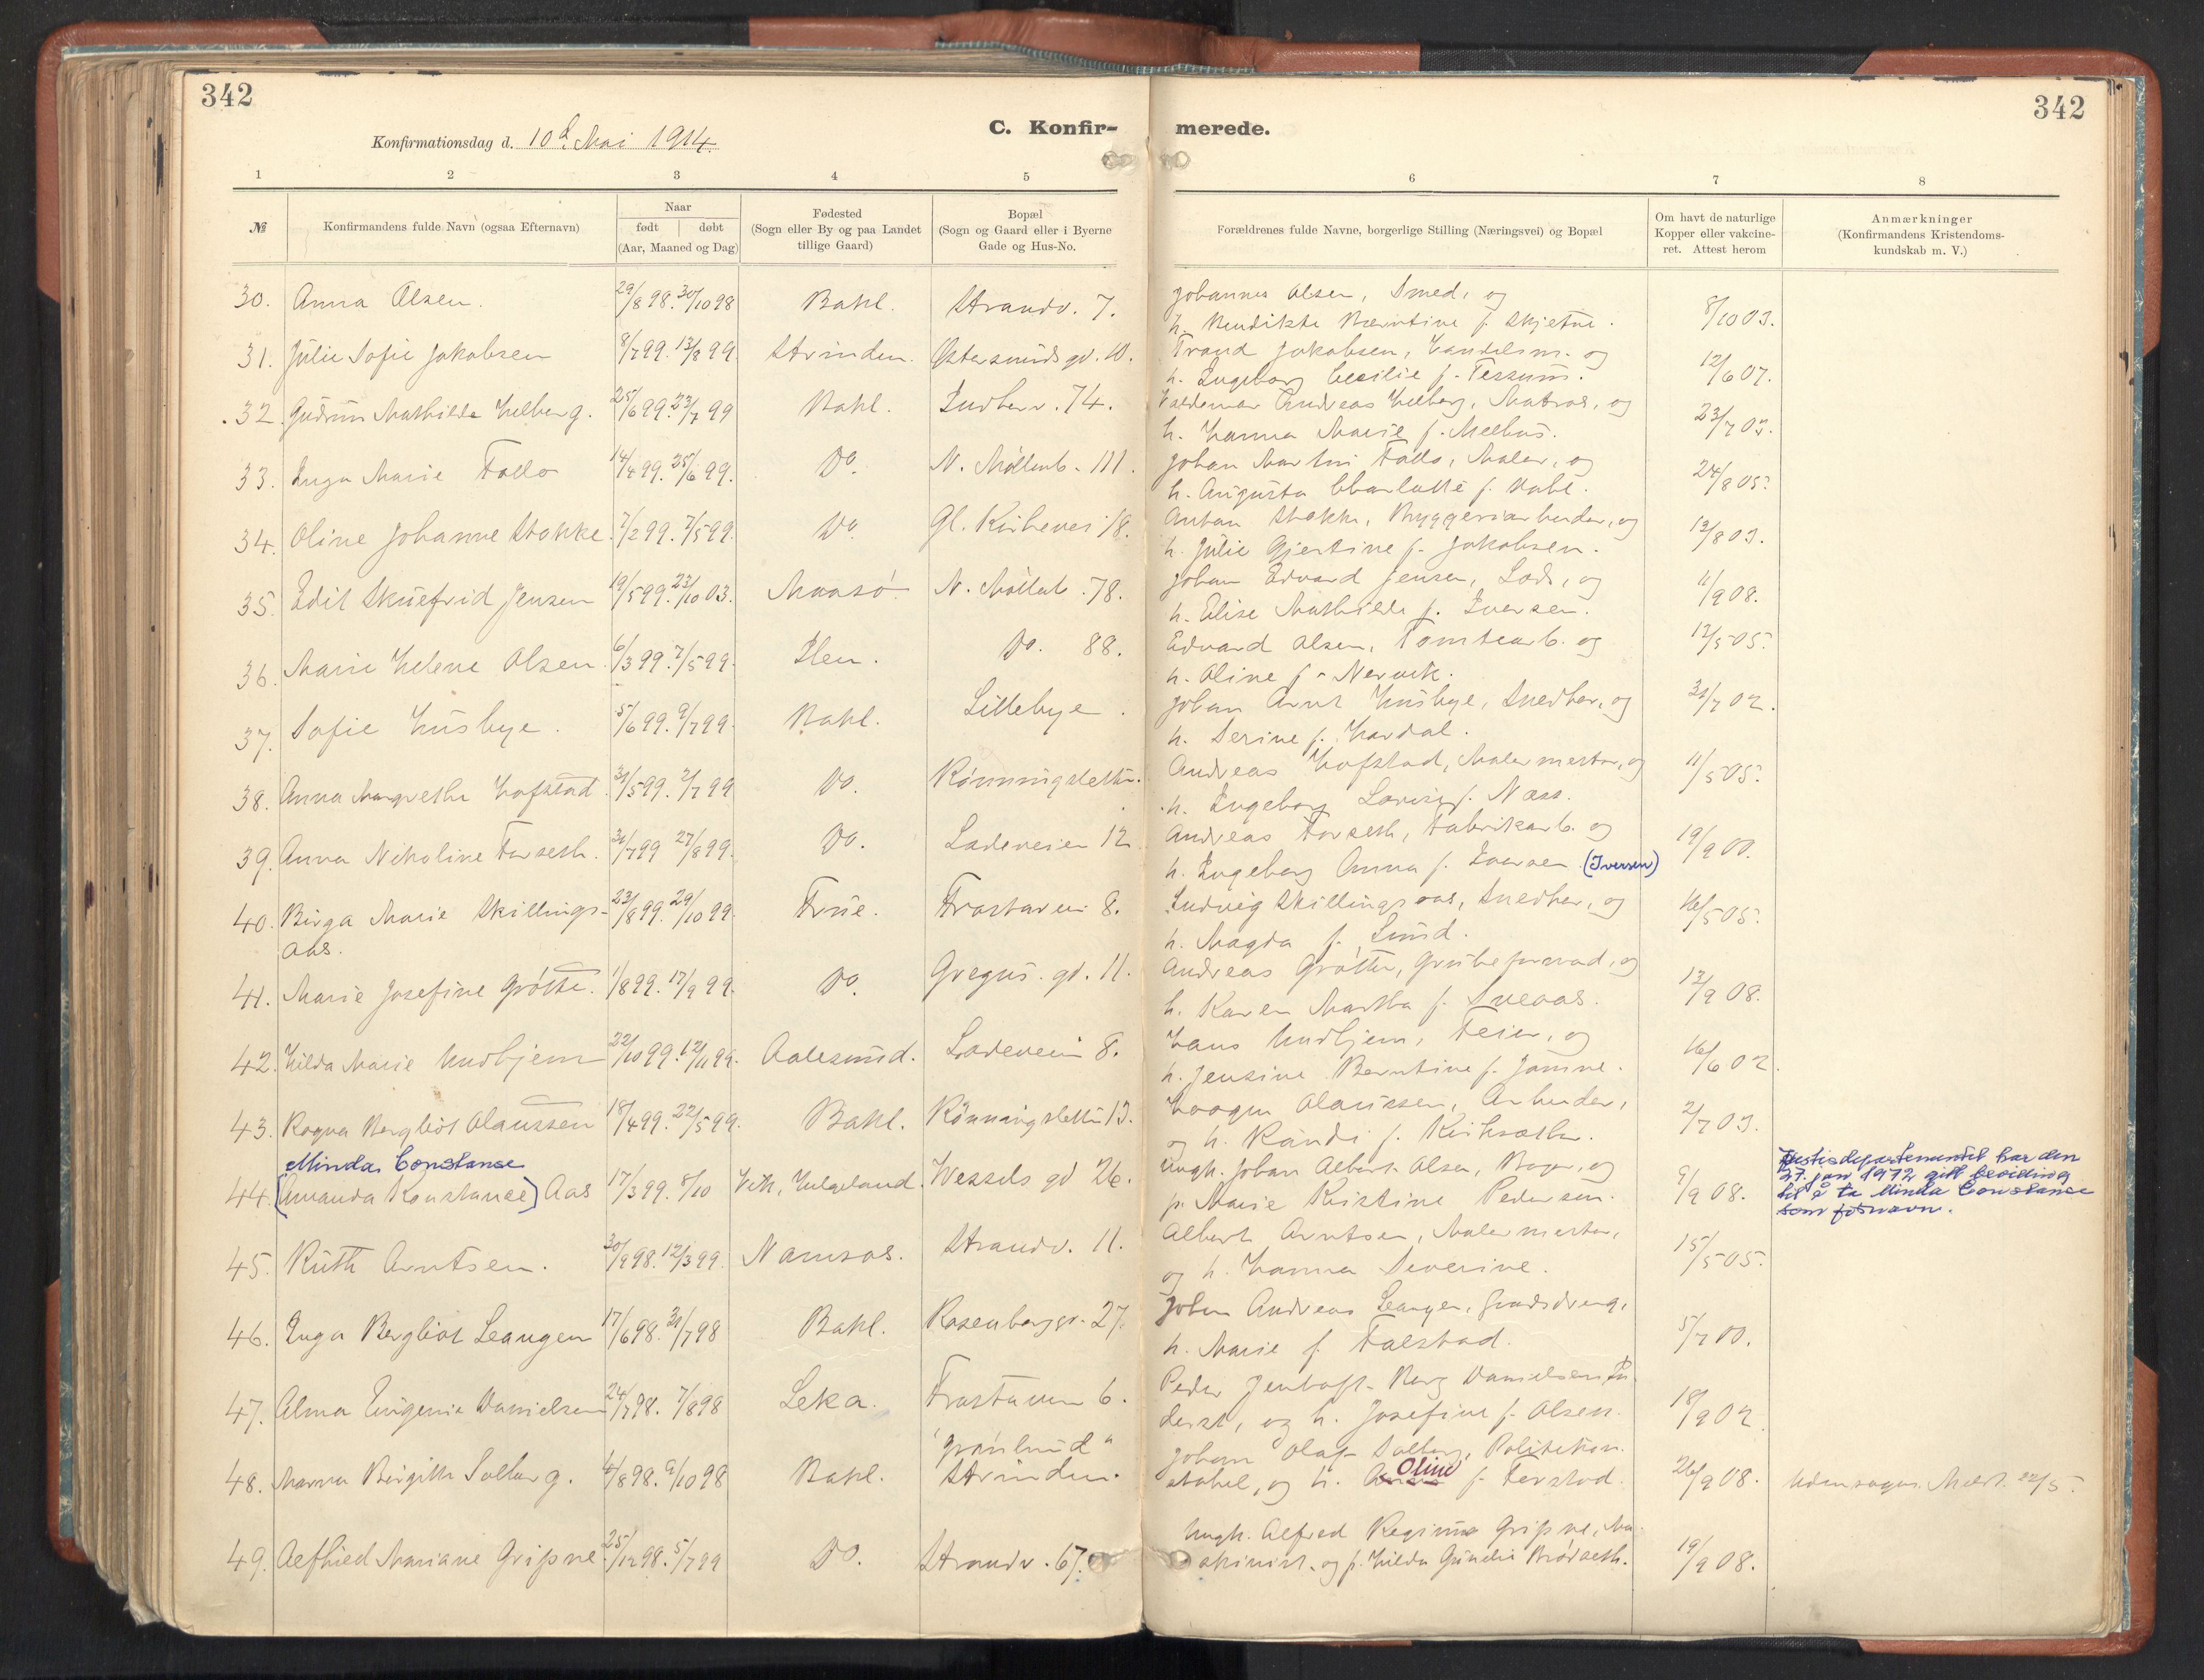 342
342
Konfirmationsdag d. 10d. Mai 1914.
C. Konfir-
merede.
1 2 3 4 5 6 7 8
№ Konfirmandens fulde Navn (ogsaa Efternavn)
Naar
født døbt
(Aar, Maaned og Dag)
Fødested
(Sogn eller By og paa Landet
tillige Gaard)
Bopæl
(Sogn og Gaard eller i Byerne
Gade og Hus-No.
Forældrenes fulde Navne, borgerlige Stilling (Næringsvei) og Bopæl
Om havt de naturlige
Kopper eller vakcine-
ret. Attest herom
Anmærkninger
(Konfirmandens Kristendoms-
kundskab m. V.)
30. Anna Olsen. 29/8 98. 30/10 98 Bakl. Strandv. 7. Johannes Olsen, Smed, og 8/10 03.
h. Bendikte Berntine f. Skjetne.
31. Julie Sofie Jakobsen 8/7 99. 13/8 99. Strinden. Østersundsgd. 10. Trond Jakobsen, Handelsm. og 12/6 07.
h. Ingeborg Cecilie f. Tessum.
32. Gudrun Mathilde Helberg. 25/6 99. 23/7 99 Bakl. Indherr. 74. Valdemar Andreas Helberg, Matros, og 23/7 05.
h. Hanna Marie f. Meehus.
33. Inga Marie Fallo 14/4 99. 25/6 99. Do. N. Møllenb. 111. Johan Martin Fallo, Maler, og 24/8 05.
h. Augusta Charlotte f. Dahl.
34. Oline Johanne Stokke. 7/2 99. 7/5 99. Do. Gl. Kirkevei 18. Anton Stokke, Byggeriarbeider, og 13/8 03.
h. Julie Gjertine f. Jakobsen.
35. Edit Skuefrid Jensen 19/5 99. 23/10 03. Maasø N. Møllenb. 78. Johan Edvard Jensen, Lods, og 11/9 08.
h. Elise Mathilde f. Iversen.
36. Marie Helene Olsen. 6/3 99. 7/5 99. Ilen. Do. 88. Edvard Olsen, Tomtearb. og 12/5 05.
h. Oline f. Nervik.
37. Sofie Husbye. 5/6 99. 9/7 99. Bakl. Lillebye. Johan Arnt Husbye, Snedker, og 31/7 02.
h. Serine f. Hordal.
38. Anna Margrethe Hofstad. 31/5 99. 2/7 99 Do. Rønningsletta. Andreas Hofstad, Malermester, og 11/5 05.
h. Ingeborg Lovise f. Næss.
39. Anna Nikoline Forseth. 31/7 99 27/8 99. Do. Ladeveien 12 Andreas Forseth, Fabrikarb. og 19/9 00.
h. Ingeborg Anna f. Iversen (Iversen)
40. Birga Marie Skillings- 23/8 99. 29/10 99. Frue. Frostavei 8. Ludvig Skillingsaas, Snedker, og 16/5 05.
aas. h. Magda f. Lund.
41. Marie Josefine Grøtte. 1/8 99. 17/9 99. Do. Gregus. gd. 11. Andreas Grøtte, Grubeformand, og 12/9 08.
h. Karen Martha f. Sneaas.
42. Hilda Marie Undhjem 22/10 99. 12/11 99. Aalesund. Ladevein 8. Hans Undhjem, Feier, og 16/6 02.
h. Jensine Berntine f. Jamne.
43. Ragna Bergliot Olaussen 18/4 99. 22/5 99. Bakl. Rønningsletta 13. Haagen Olaussen, Arbeider, 2/7 03.
og h. Randi f. Kirksæther.
Minda Constanse
44. (Amanda Konstance) Aas 17/3 99. 8/10 Vik, Helgeland. Wessels gd 26. Ungk. Johan Albert Olsen, Bager, og 9/9 08.
p. Marie Kristine Pedersen.
Justisdepartementet har den
27. jan 1972 gitt bevilling
til å ta Minda Constanse
som fornavn.
45. Ruth Arntsen. 30/9 98. 12/3 99. Namsos. Strandv. 11. Albert Arntsen, Malermester, 15/5 05.
og h. Hanna Severine.
46. Inga Bergliot Leangen 17/6 98. 31/7 98 Bakl. Rosenborggr. 27. Johan Andreas Leangen, Gaardsdreng, 5/7 00.
h. Marie f. Falstad.
47. Alma Eugenie Danielsen 24/7 98. 7/8 98 Leka. Frostavein 6. Peder Jentoft Berg Danielsen, In-
derst, og h. Josefine f. Olsen. 18/9 02
48. Marna Birgitte Solberg. 4/8 98. 9/10 98 Bakl. "Grønlund" Strinden. Johan Olaf Solberg, Politikon-
stabel, og h. Oline f. Ferstad. 26/9 08. Udensogns. Meld. 22/5.
49. Aefhied Mariane Gripne 25/12 98. 5/7 99 Do. Strandv. 67. Ungk. Alfred Reginius Gripne, Ma-
skinist, og p. Hilda Gundia Brødseth. 19/9 08.